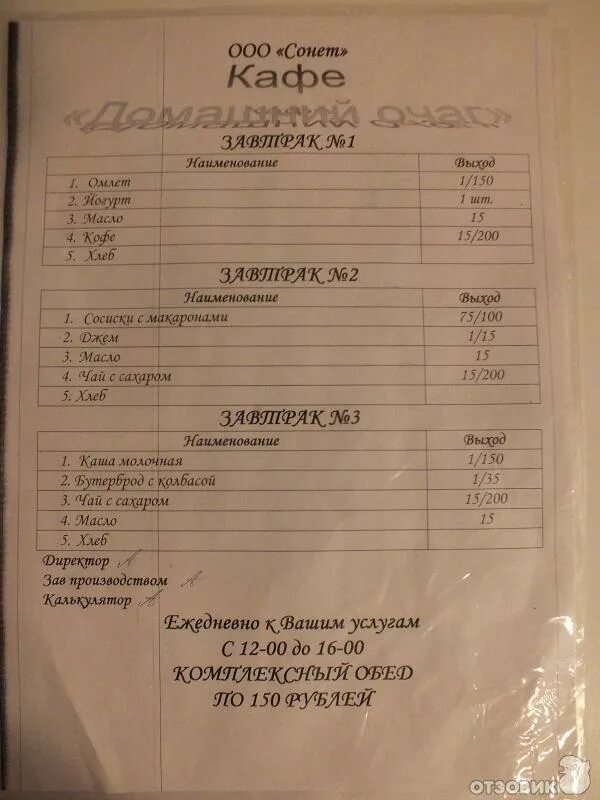 ООО «Сонет»
Кафе
«Домашний очаг»
ЗАВТРАК №1
Наименование Выход
1. Омлет 1/150
2. Йогурт 1 шт.
3. Масло 15
4. Кофе 15/200
5. Хлеб
ЗАВТРАК №2
Наименование Выход
1. Сосиски с макаронами 75/100
2. Джем 1/15
3. Масло 15
4. Чай с сахаром 15/200
5. Хлеб
ЗАВТРАК №3
Наименование Выход
1. Каша молочная 1/150
2. Бутерброд с колбасой 1/35
3. Чай с сахаром 15/200
4. Масло 15
5. Хлеб
Директор
Зав производством
Калькулятор
Ежедневно к Вашим услугам
С 12-00 до 16-00
КОМПЛЕКСНЫЙ ОБЕД
ПО 150 РУБЛЕЙ
ОТЗОВИК